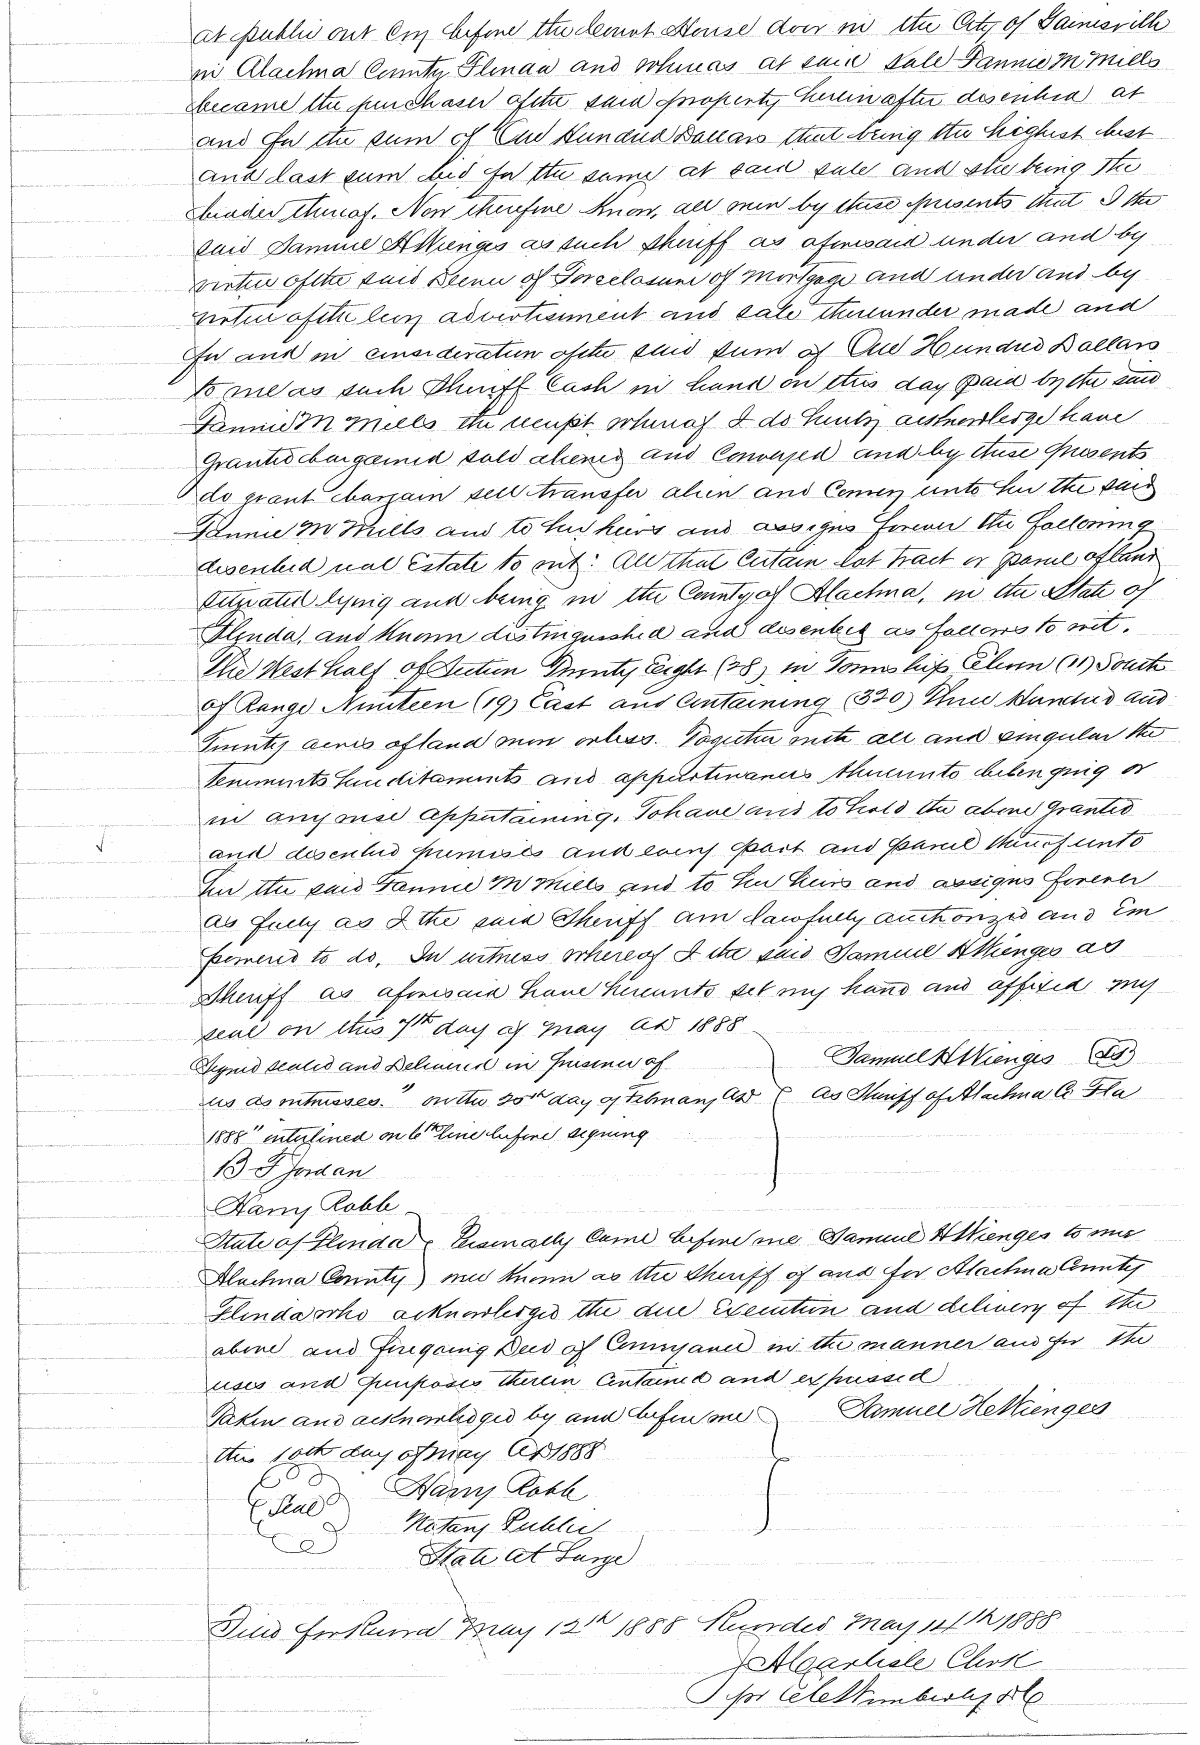 at public out cry before the Court House door in the City of Gainesville
in Alachua County Florida and whereas at said sale Fannie M Mills
became the purchaser of the said property herein after described at
and for the sum of One Hundred Dollars that being the highest best
and last sum bid for the same at said sale and she being the
bidder thereof. Now therefore Know, all men by these presents that I the
said Samuel H Wienges as such Sheriff as aforesaid under and by
virtue of the said Decree of Foreclosure of Mortgage and under and by
virtue of the levy advertisement and sale thereunder made and
for and in consideration of the said sum of One Hundred Dollars
to me as such Sheriff Cash in hand on this day paid by the said
Fannie M Mills the receipt whereof I do hereby acknowledge have
Granted bargained sold aliened and Conveyed and by these presents
do grant bargain sell transfer alien and Convey unto her the said
Fannie M Mills and to her heirs and assigns forever the following
described real Estate to wit: All that Certain lot tract or parcel of land
situated lying and being in the County of Alachua, in the State of
Florida, and Known distinguished and described as follows to wit.
The West half of Section Twenty Eight (28) in Township Eleven (11) South
of Range Nineteen (19) East and Containing (320) Three Hundred and
Twenty acres of land more or less. Together with all and singular the
tenements hereditaments and appurtenances thereunto belonging or
in any wise appertaining. To have and to hold the above granted
and described premises and every part and parcel thereof unto
her the said Fannie M Mills and to her heirs and assigns forever
as fully as I the said Sheriff am lawfully authorized and Em
powered to do. In witness whereof I the said Samuel H Wienges as
Sheriff as aforesaid have hereunto set my hand and affixed my
seal on this 7th day of May AD 1888
Signed sealed and Delivered in Presence of Samuel H Wienges (LS)
us as witnesses. "on the 20th day of February AD As Sheriff of Alachua Co Fla
1888" interlined on 6th line before signing
B F Jordan
Harry Robb
State of Florida Personally Came before me Samuel H Wienges to me
Alachua County) me Known as the Sheriff of and for Alachua County
Florida who acknowledged the due Execution and delivery of the
above and foregoing Deed of Conveyance in the manner and for the
uses and purposes therein Contained and expressed
Taken and acknowledged by and before me Samuel H Wienges
this 10th day of May AD 1888
(Seal) Harry Robb
Notary Public
State at Large
Filed for Record May 12th 1888 Recorded May 14th 1888
J A Carlisle Clerk
per Wimberly DC